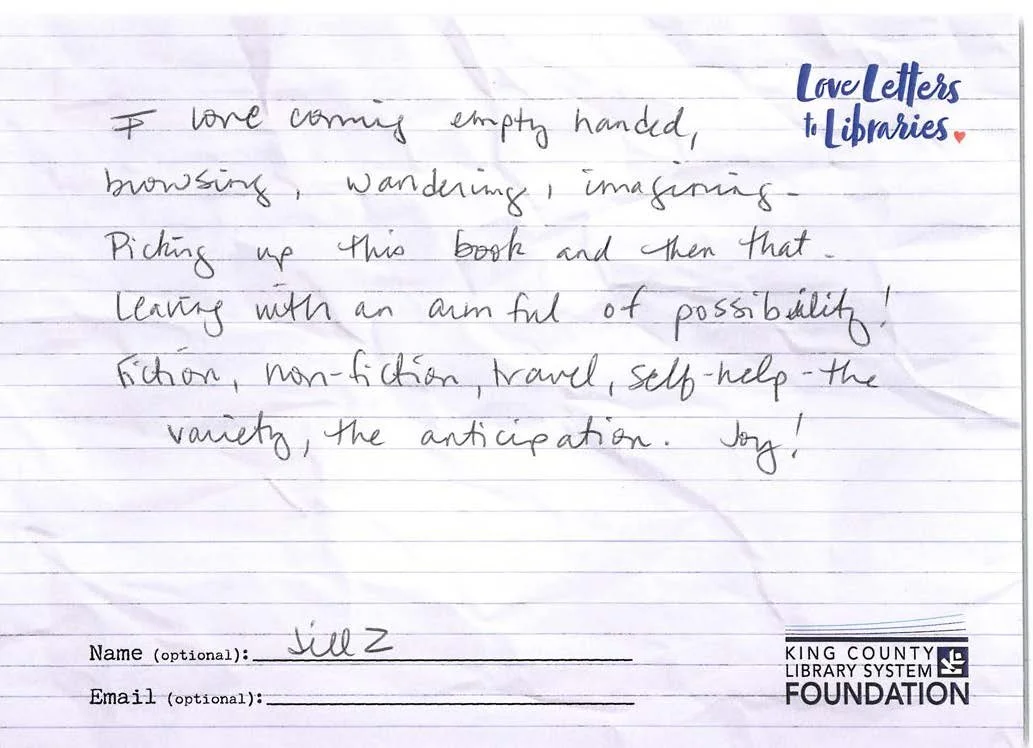 Love Letters
to Libraries
I love coming empty handed,
browsing, wandering, imagining-
Picking up this book and then that.
Leaving with an armful of possibility!
Fiction, non-fiction, travel, self-help - the
variety, the anticipation. Joy!
Name (optional): Jill Z
Email (optional):
KING COUNTY
LIBRARY SYSTEM
FOUNDATION